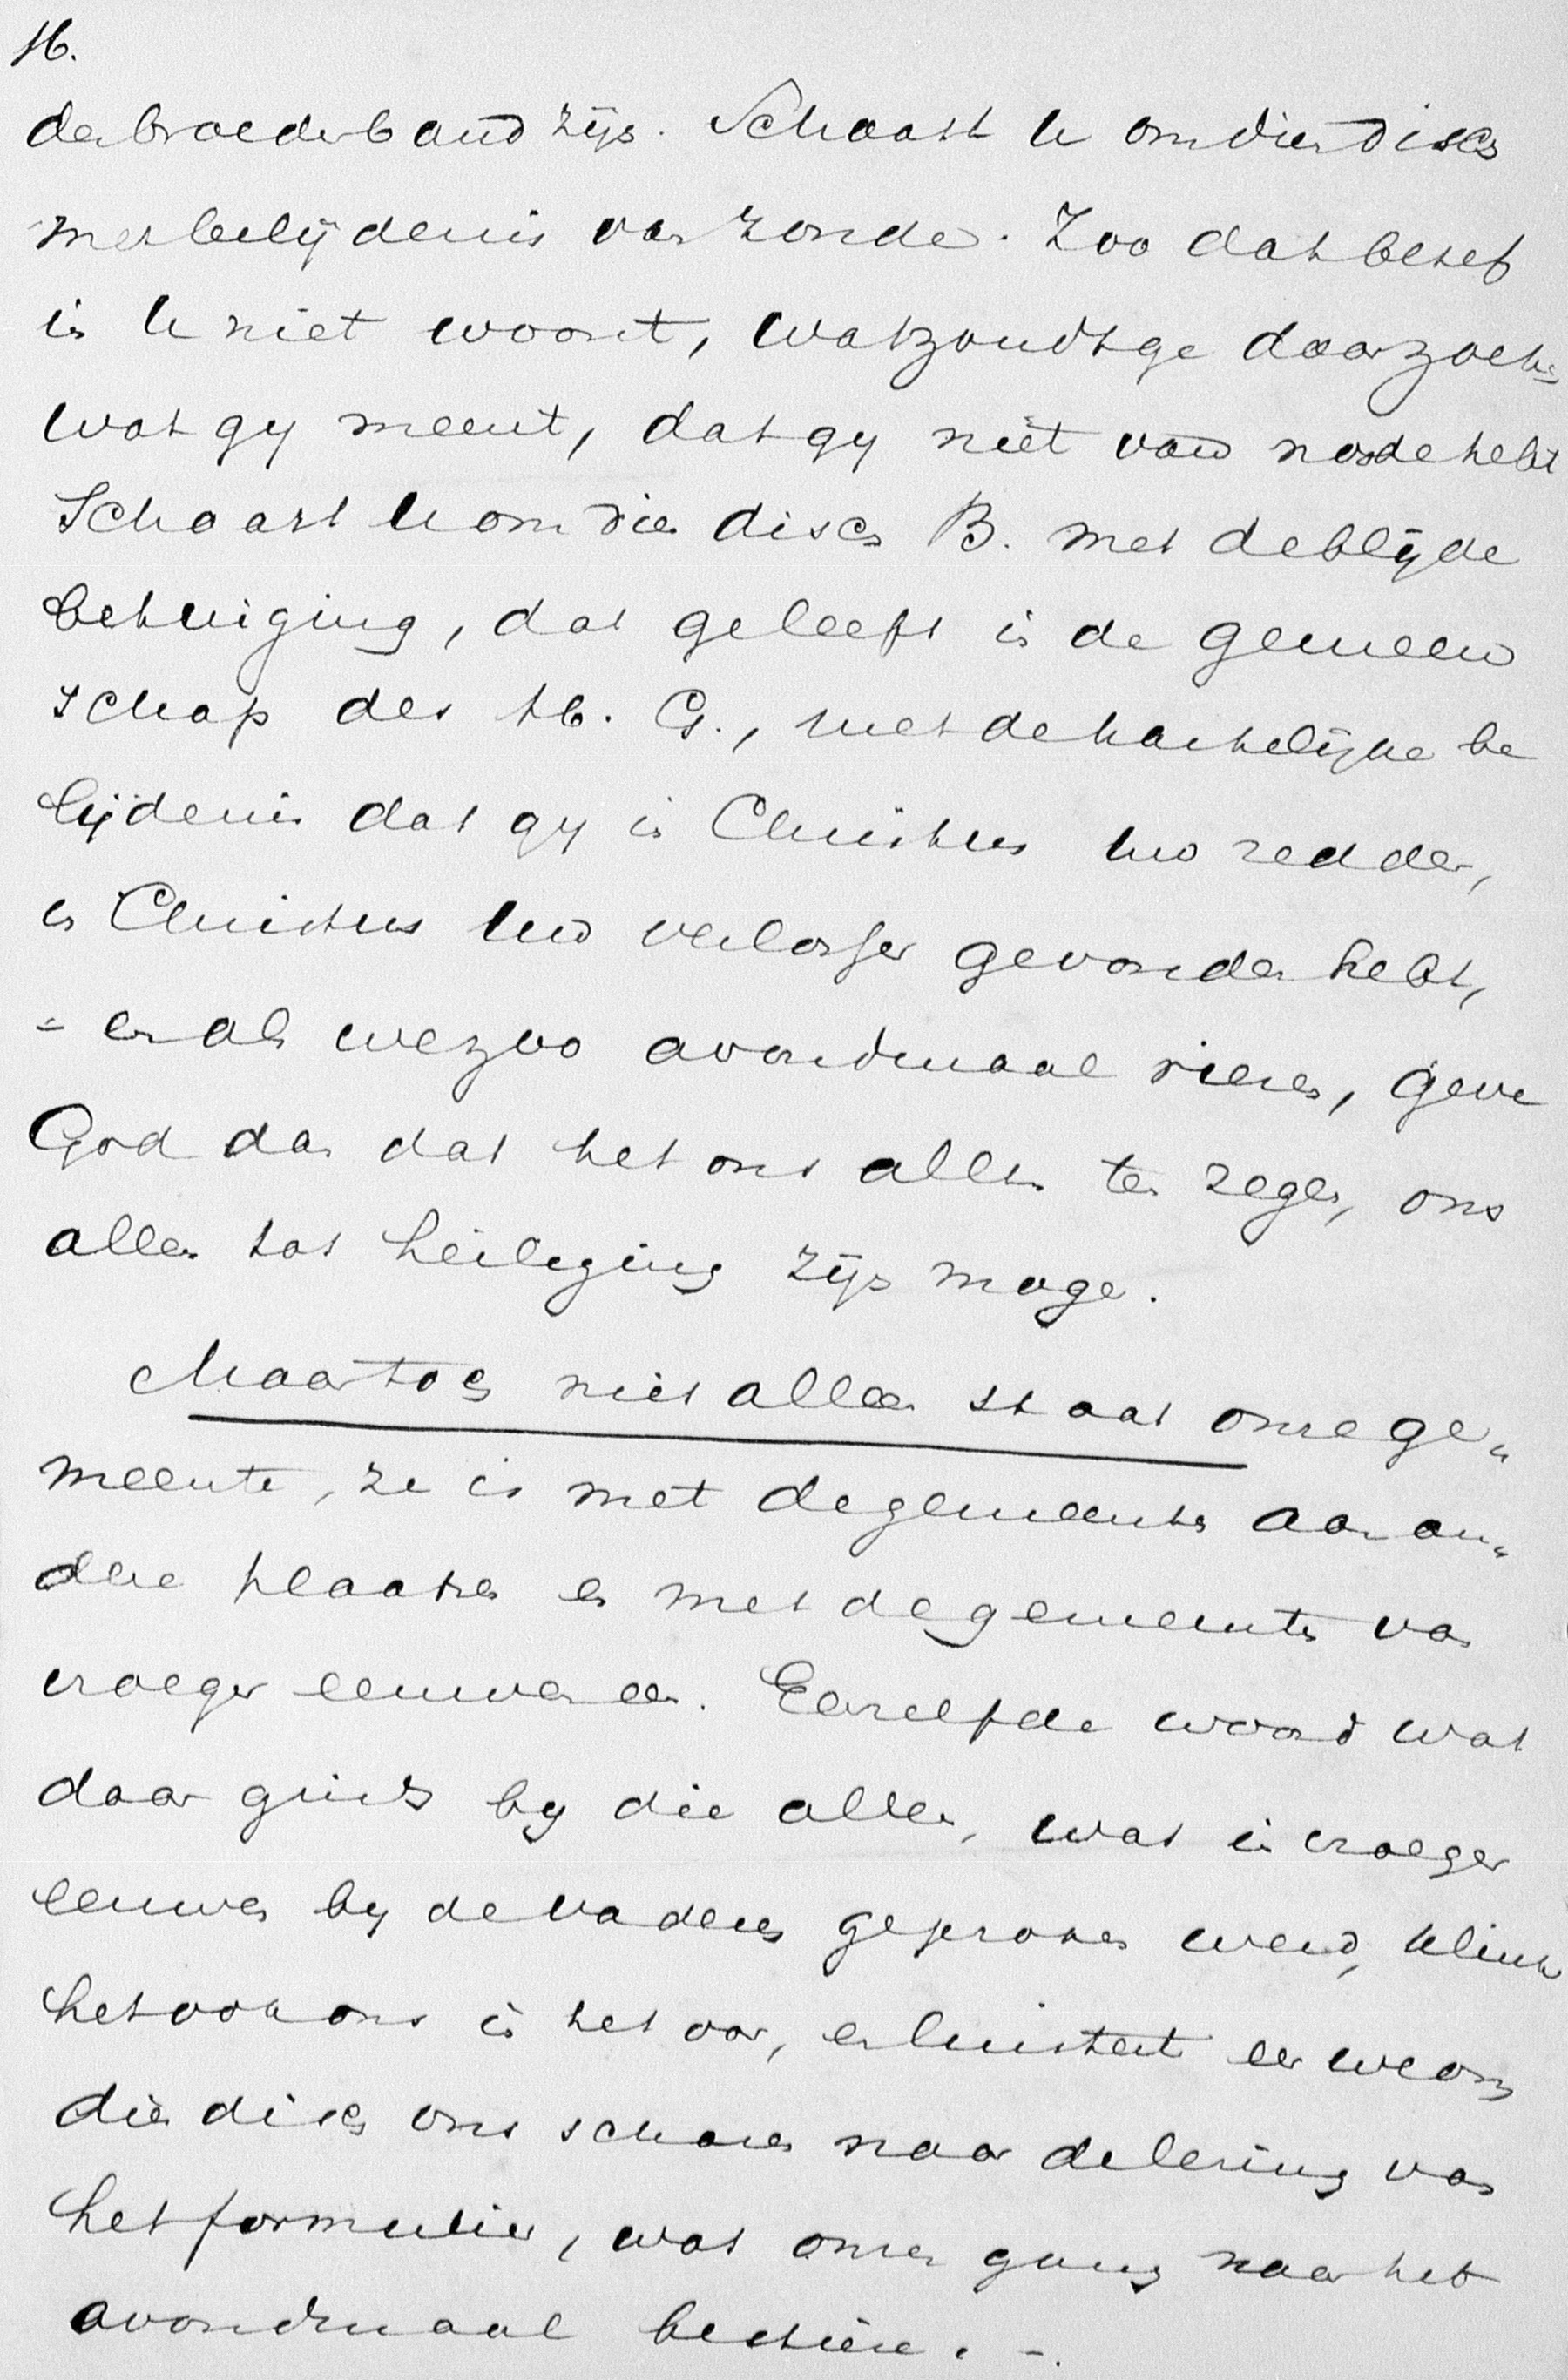 16.
der broederband zijn. Schaart U om dien disch
met belijdenis van zonden. Zoo dat besef
in U niet woont, wat zoudt ge daar zoeken
wat gy meent, dat gy niet van noode hebt
Schaart U om dien disch B. met de blijde
betuiging, dat geleeft in de gemeen
schap des H. G., met de hartelijke be
lijdenis dat gy in Christus Uw redder,
in Christus Uw verlosser gevonden hebt,
- en als we zoo avondmaal vieren, geve
God dan dat het ons allen ten zegen, ons
allen tot heiliging zijn moge.
Maar toch niet alleen staat onze ge„
meente, ze is met de gemeente aan an„
dere plaatsen en met de gemeente van
vroeger eeuwen een. Eenzelfde woord wat
daar ginds by die allen, wat in vroeger
eeuwen by de vaderen gesproken werd, klink
het ook ons in het oor, en luistert eer we om
dien disch ons scharen naar de lezing van
het formulier, wat onzen gang naar het
avondmaal bestiere. -.